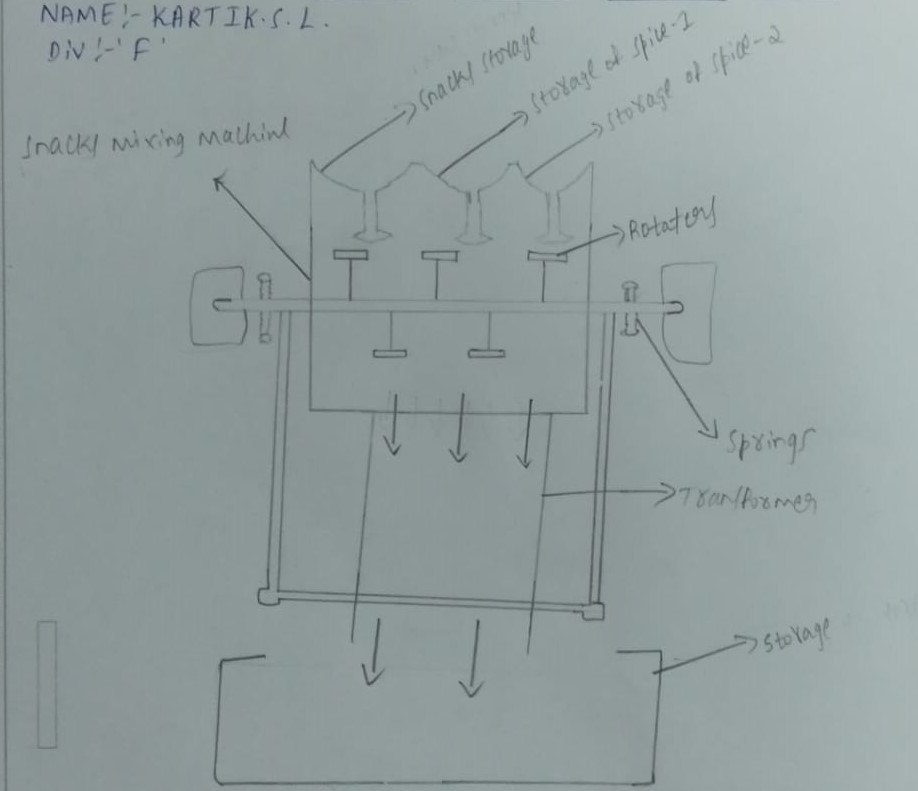 NAME:- KARTIK.S.L.
DIV:-'F'
Snacks storage
storage of spice-1
storage of spice-2
Snacks mixing machine
Rotaters
Springs
Transformer
storage